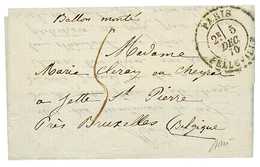 Ballon monté
PARIS
2E 5
DEC.
70
BELLEVILLE
Madame
Marie Cleray ou Cheyran
à Jette St Pierre
Près Bruxelles (Belgique